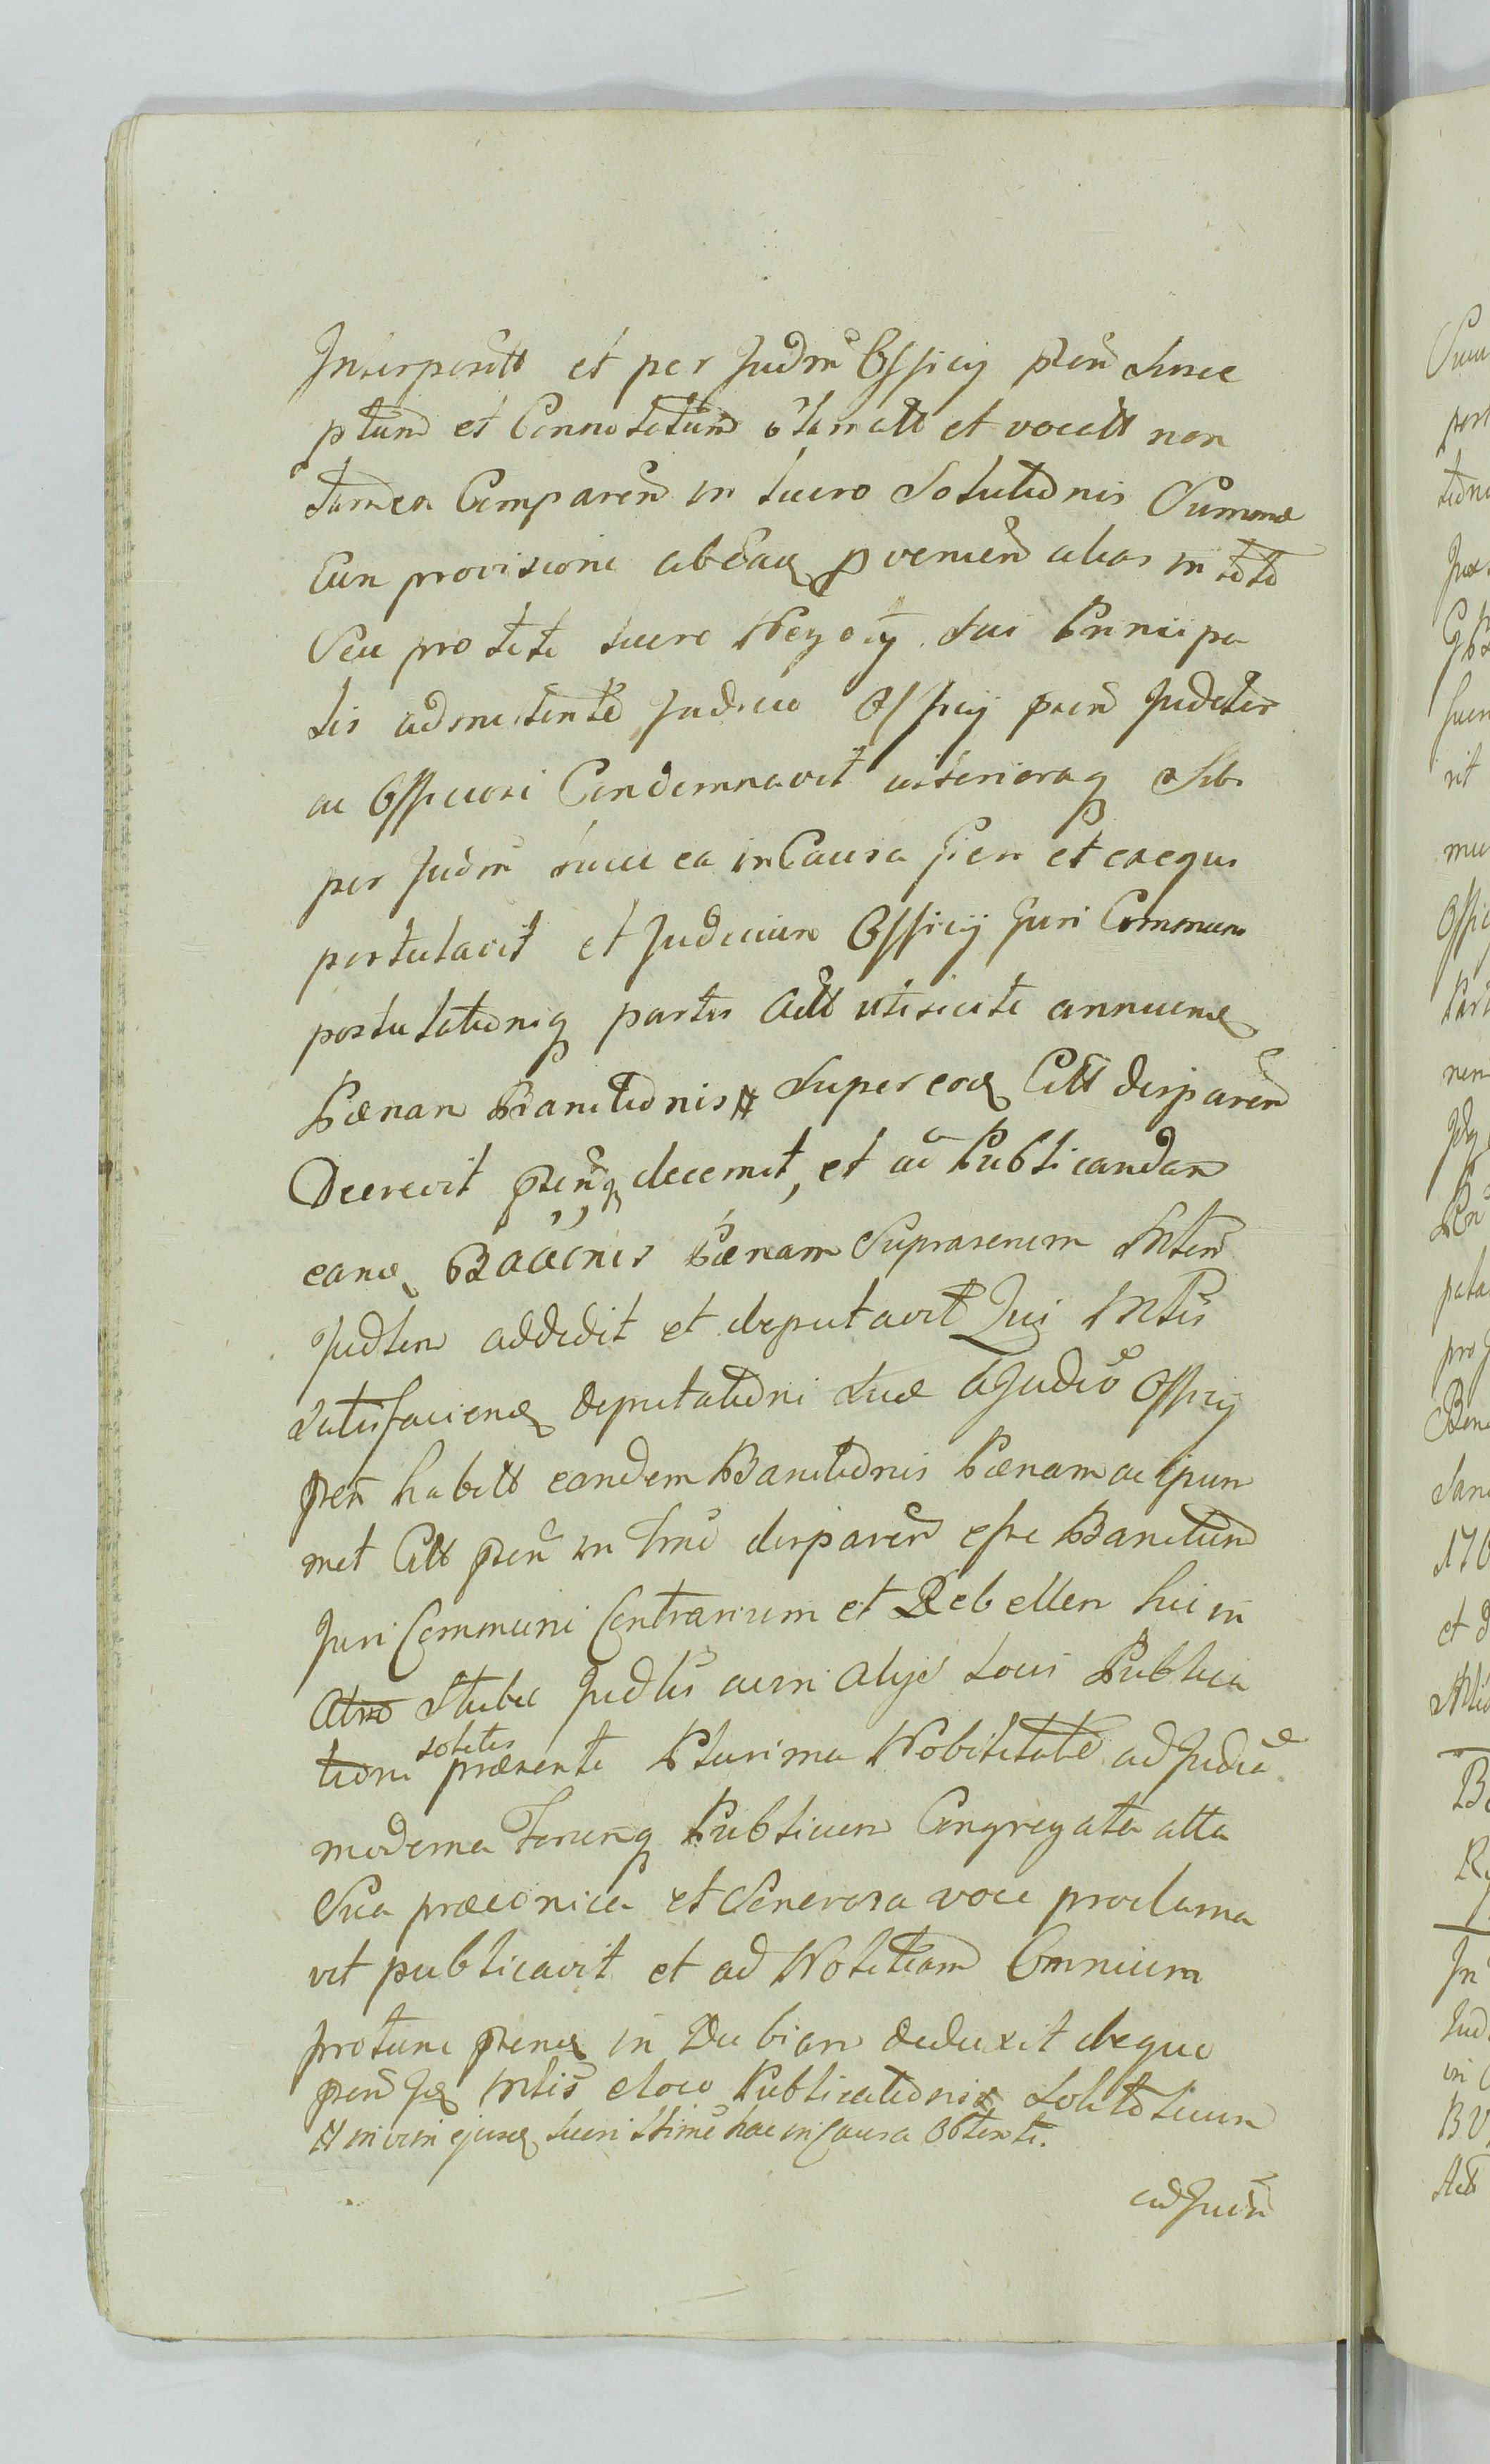 Interposit et per Judm Officij pñ Susce
ptum et Connotatum clamatt et vocatt non
tamen Comparen in lucro Solutionis Summæ
Cum provisione ab eaq proveñ alias in toto
Seu pro toto lucro Negotij Sui Principa
lis admittente Judicio Officij pñ Judlr
ac Officiose Condemnavit ulterioraq Sibi
per Judm luce ea in Causa fieri et exequi
postulavit et Judicium Officij Juri Communi
postulationiq partis Actt uti licite annuen
Pænam Bannitionis # Super eod Citt disparen
Decrevit pñq decernit, et ad Publicandam
eand Bannitnis Pænam Suprascriptum Mtem
Judlem addidit et deputavit Qui Mlis
Satisfacien Deputationi Suæ a Judio Officij
pñ habitt eandem Banitionis Pænam ac ipsum
met Citt pñ in Tmo disparen esse Banitum
Juri Communi Contrarium et Rebellem hic in
Stuba Judlis cum alijs locis Publica
tioni solitis præsente Plurima Nobilitate ad Judia
moderna Forumq Publicum Congregata alta
Sua præconica et Generosa voce proclama
vit publicavit et ad Notitiam Omnium
protunc pñ in Dubiam deduxit deque
pñ Mlis eloco Publicationis Solito Suum
# in vim ejusd lucri Stime hac in Causa Obtenti.
ad Judm